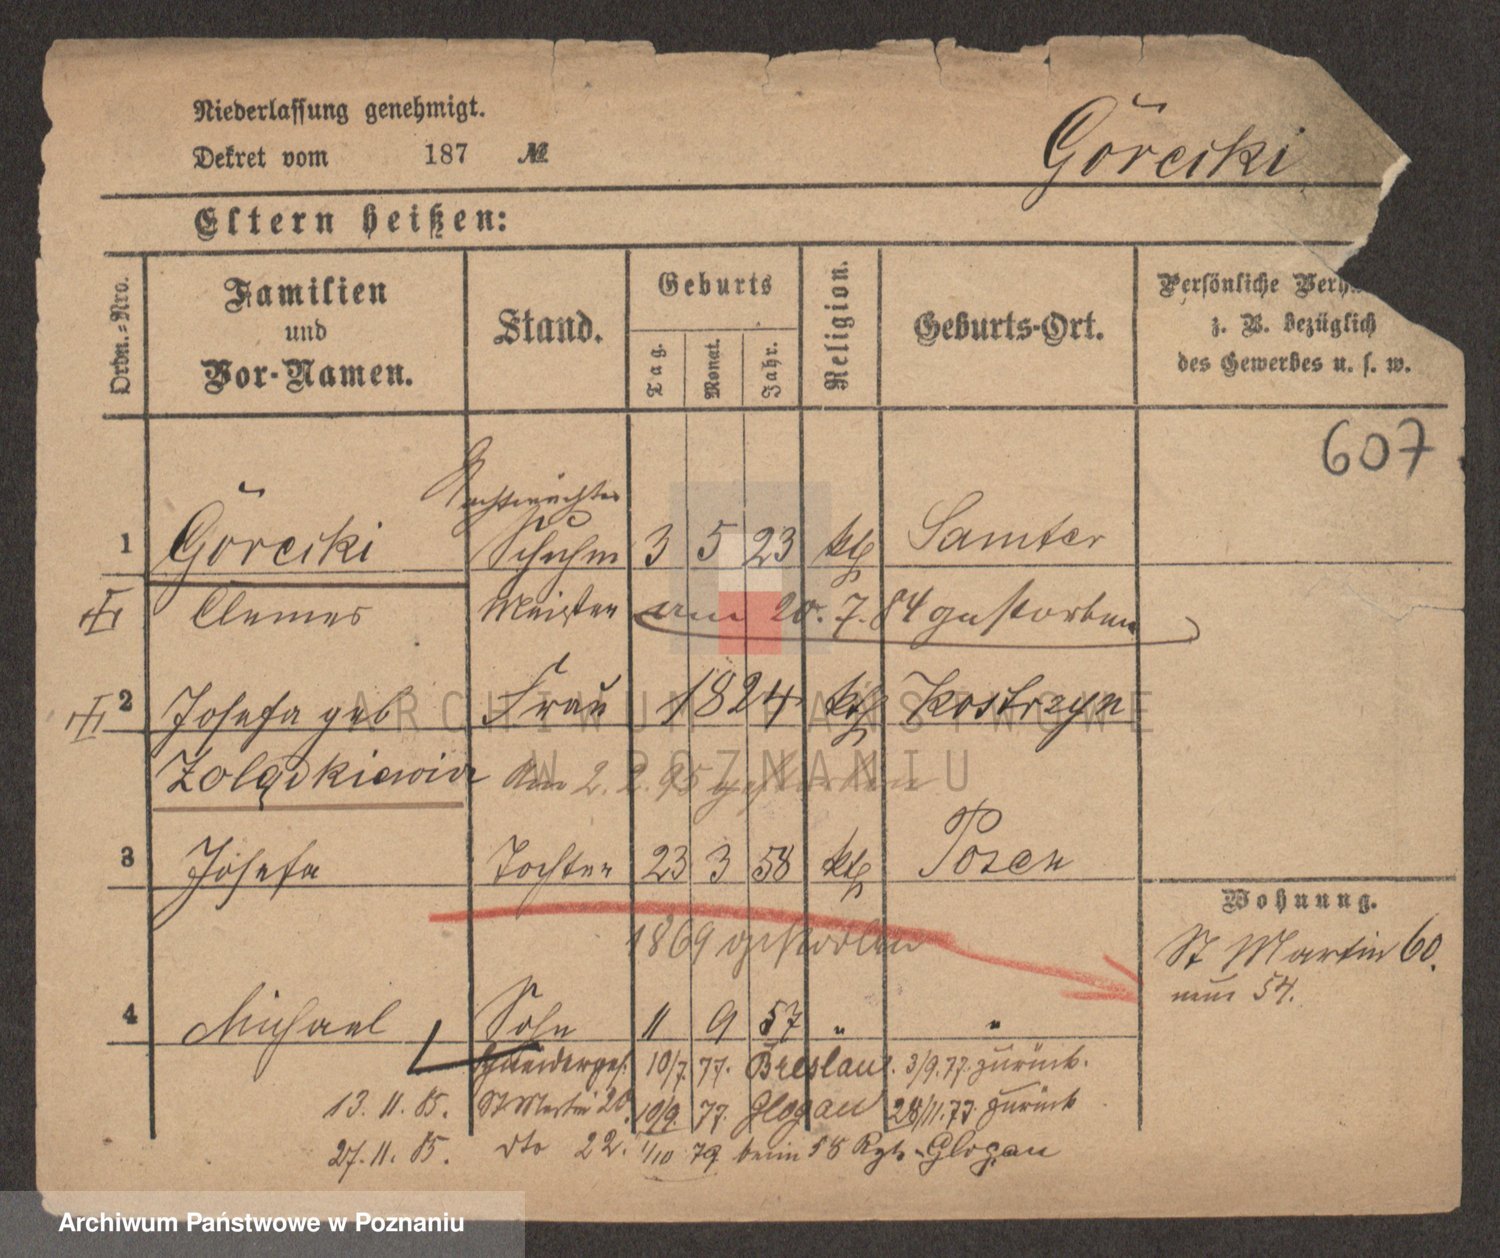 Niederlassung genehmigt.
Dekret vom 187 №
Górecki
Eltern heißen:
Ordn.-Nro.
Familien und Vor-Namen.
Stand.
Geburts
Tag.
Monat.
Jahr.
Religion.
Geburts-Ort.
Persönliche
z. B. bezüglich
des Gewerbes u. s. w.
607
Nachtwächter
1 Górecki Schuhm 3 5 23 kth Samter
Clemes Meister am 20. 7. 84 gestorben
2 Josefa geb Frau 1824 kth Kostrzyn
Zolądkiewicz Am 2. 2. 95 gestorben
3 Josefa Tochter 23 3 58 kth Posen
1869 gestorben
Wohnung.
St Martin 60.
neue 54.
4 Michael Sohn 11 9 57 " "
Schneiderges. 10/7. 77. Breslau. 3/9. 77. zurück.
13. 11. 85. St Martin 20. 10/9. 77. Glogau 28/11. 77. zurück
27. 11. 85. dto 22. 1/10 79 beim 58 Rgt. Glogau
ARCHIWUM PAŃSTWOWE
W POZNANIU
Archiwum Państwowe w Poznaniu